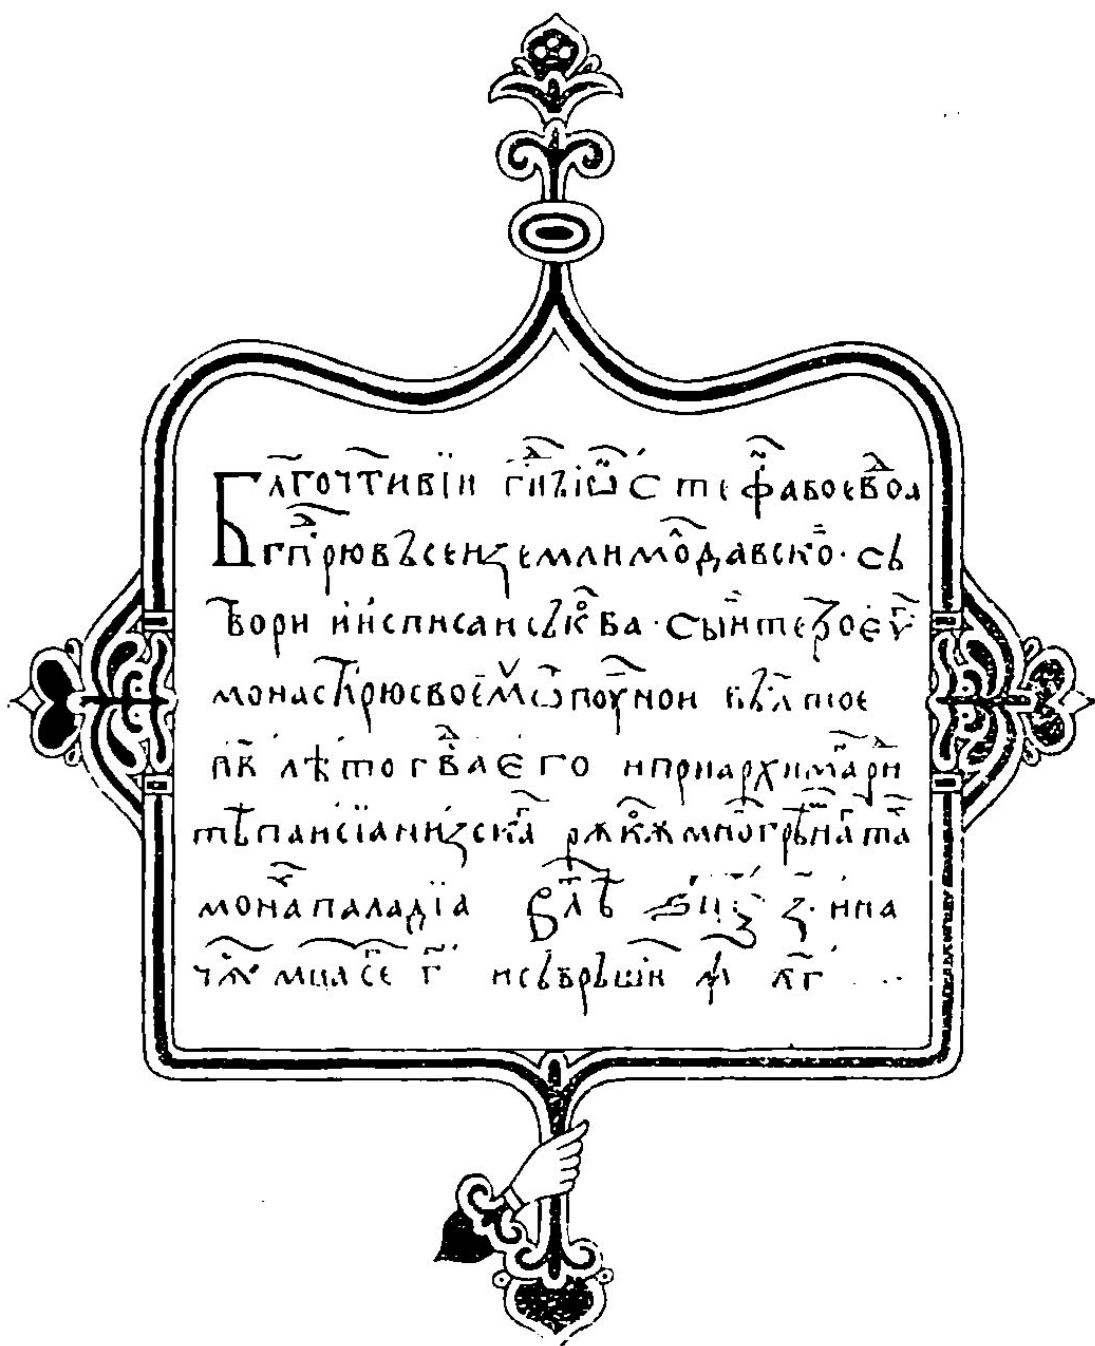 Бл҃гочт҃ивїи гⷣ҇нъ іѡ҃ Стефа҃ воевⷣоа
гпⷣ҇рю въсеи земли молⷣавскоⷨ· съ
твори и исписа и съкова· сьи тетроеѵⷢ҇
монастирю своемꙋ ѿ поутнои въ л҃тюе
п҃к лѣто гвⷣа его и при архимаⷩ҇ⷣри
тѣ паисїа низскаⷢ҇ рѫкѫ многогрѣшнаⷢ҇ та҃
монаⷯ҇а паладїа вл҃ѣт ҂ѕц҃ч҃з· и па
чѧⷧ҇ мц҃а се гⷷ и съвръши м҃ л҃г